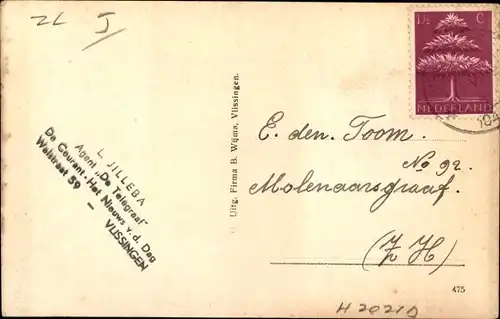 ZL I
1½ C
NEDERLAND
L. JILLEBA
Agent „De Telegraaf"
De Courant - Het Nieuws v. d. Dag
Walstraat 59 - VLISSINGEN
Uitg. Firma B. Wijma, Vlissingen.
E. den. Toom.
No 92.
Molenaarsgraaf.
(Z H)
475
H 20210